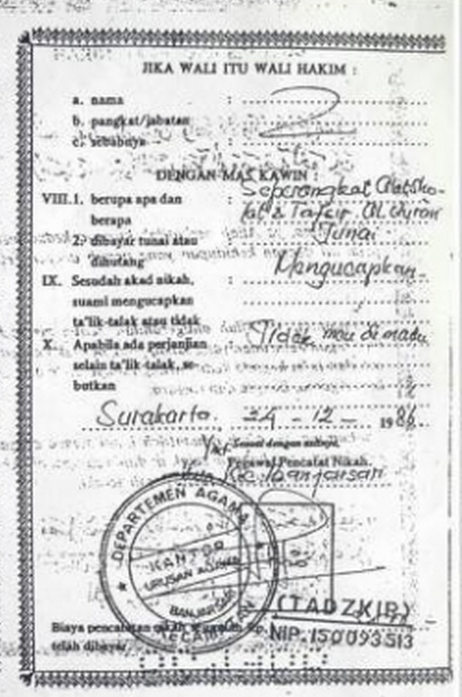 JIKA WALI ITU WALI HAKIM :
a. nama :
b. pangkat/jabatan :
c. sebabnya :
DENGAN MAS KAWIN :
VIII. 1. berupa apa dan : Seperangkat Alat Sho-
berapa lat & Tafsir Al Quran
2. dibayar tunai atau : Tunai
dihutang
IX. Sesudah akad nikah, : Mengucapkan
suami mengucapkan
ta'lik-talak atau tidak
X. Apabila ada perjanjian : Tidak mau dimadu
selain ta'lik-talak, se-
butkan
Surakarta, 24 - 12 - 1986
Pegawai Pencatat Nikah.
Kec. Banjarsari
DEPARTEMEN AGAMA
KANTOR
URUSAN AGAMA
BANJARSARI
KECAMATAN
(TADZKIR)
NIP. 150093513
Biaya pencatatan nikah
telah dibayar